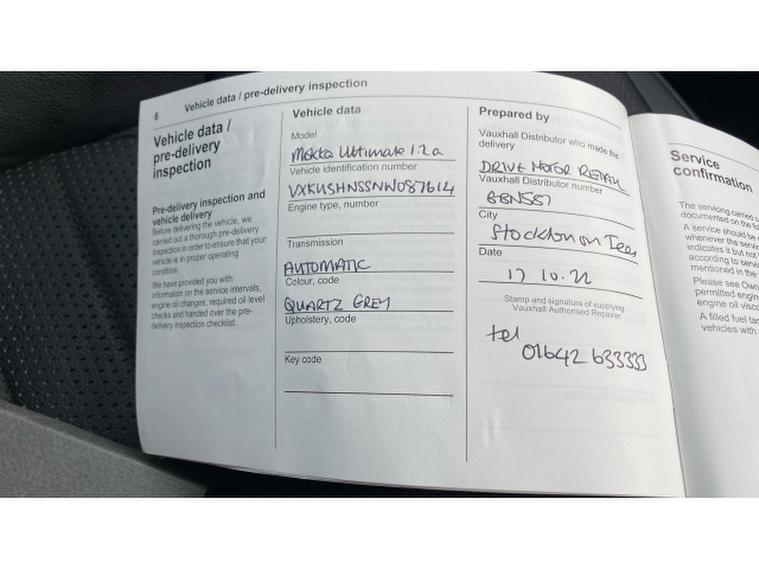 6 Vehicle data / pre-delivery inspection
Vehicle data /
pre-delivery
inspection
Pre-delivery inspection and
vehicle delivery
Before delivering the vehicle, we
carried out a thorough pre-delivery
inspection in order to ensure that your
vehicle is in proper operating
condition.
We have provided you with
information on the service intervals,
engine oil changes, required oil level
checks and handed over the pre-
delivery inspection checklist.
Vehicle data
Model
Mokka Ultimate 1.2 a
Vehicle identification number
VXKUSHNSSNW087614
Engine type, number
Transmission
AUTOMATIC
Colour, code
QUARTZ GREY
Upholstery, code
Key code
Prepared by
Vauxhall Distributor who made the
delivery
DRIVE MOTOR RETAIL
Vauxhall Distributor number
City
Stockton on Tees
Date
17 10.22
Stamp and signature of supplying
Vauxhall Authorised Repairer
tel
01642 633333
Service
confirmation
The servicing carried
documented on the
A service should be
whenever the
indicates it but not
according to
mentioned in the
Please see
permitted
engine oil
A filled fuel
vehicles with